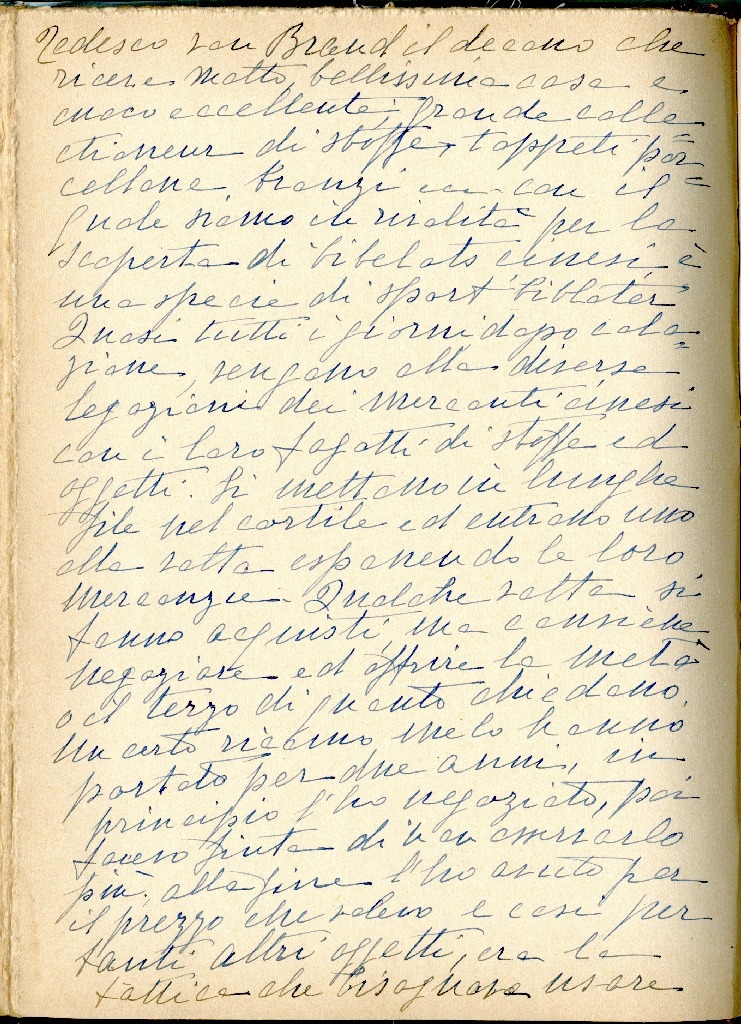 Tedesco von Brand il decano che
riceve molto, bellissima casa e
cuoco eccellente, grande colle=
ctionneur di stoffe, tappeti por=
cellane bronzi con il
quale siamo in rivalità per la
scoperta di bibelots cinesi, è
una specie di sport "bibloter"
Quasi tutti i giorni, dopo cola=
zione, vengono alle diverse
legazioni dei mercanti cinesi
con i loro fagotti di stoffe ed
oggetti. Si mettono in lunghe
file nel cortile ed entrano uno
alla volta esponendo le loro
mercanzie. Qualche volta si
fanno acquisti, ma conviene
negoziare ed offrire la metà
o il terzo di quanto chiedono.
Un certo ricamo me lo hanno
portato per due anni, in
principio l'ho negoziato, poi
facevo finta di non osservarlo
più, alla fine l'ho avuto per
il prezzo che volevo e così per
tanti altri oggetti, era la
tattica che bisognava usare